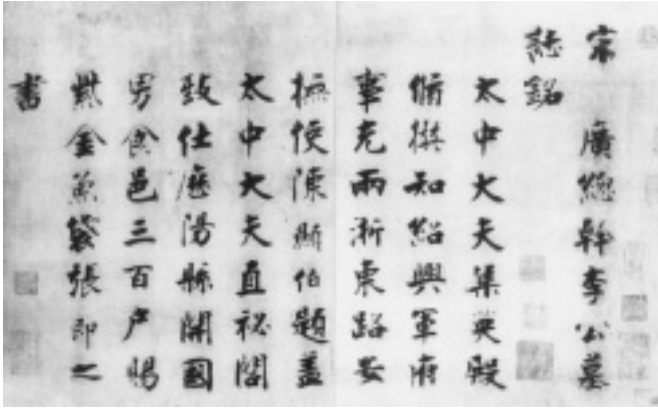 宋 廣總幹李公墓
誌銘
太中大夫集英殿
脩撰知紹興軍府
事充兩浙東路安
撫使陳顯伯題蓋
太中大夫直祕閣
致仕歷陽縣開國
男食邑三百户賜
紫金魚袋張即之
書